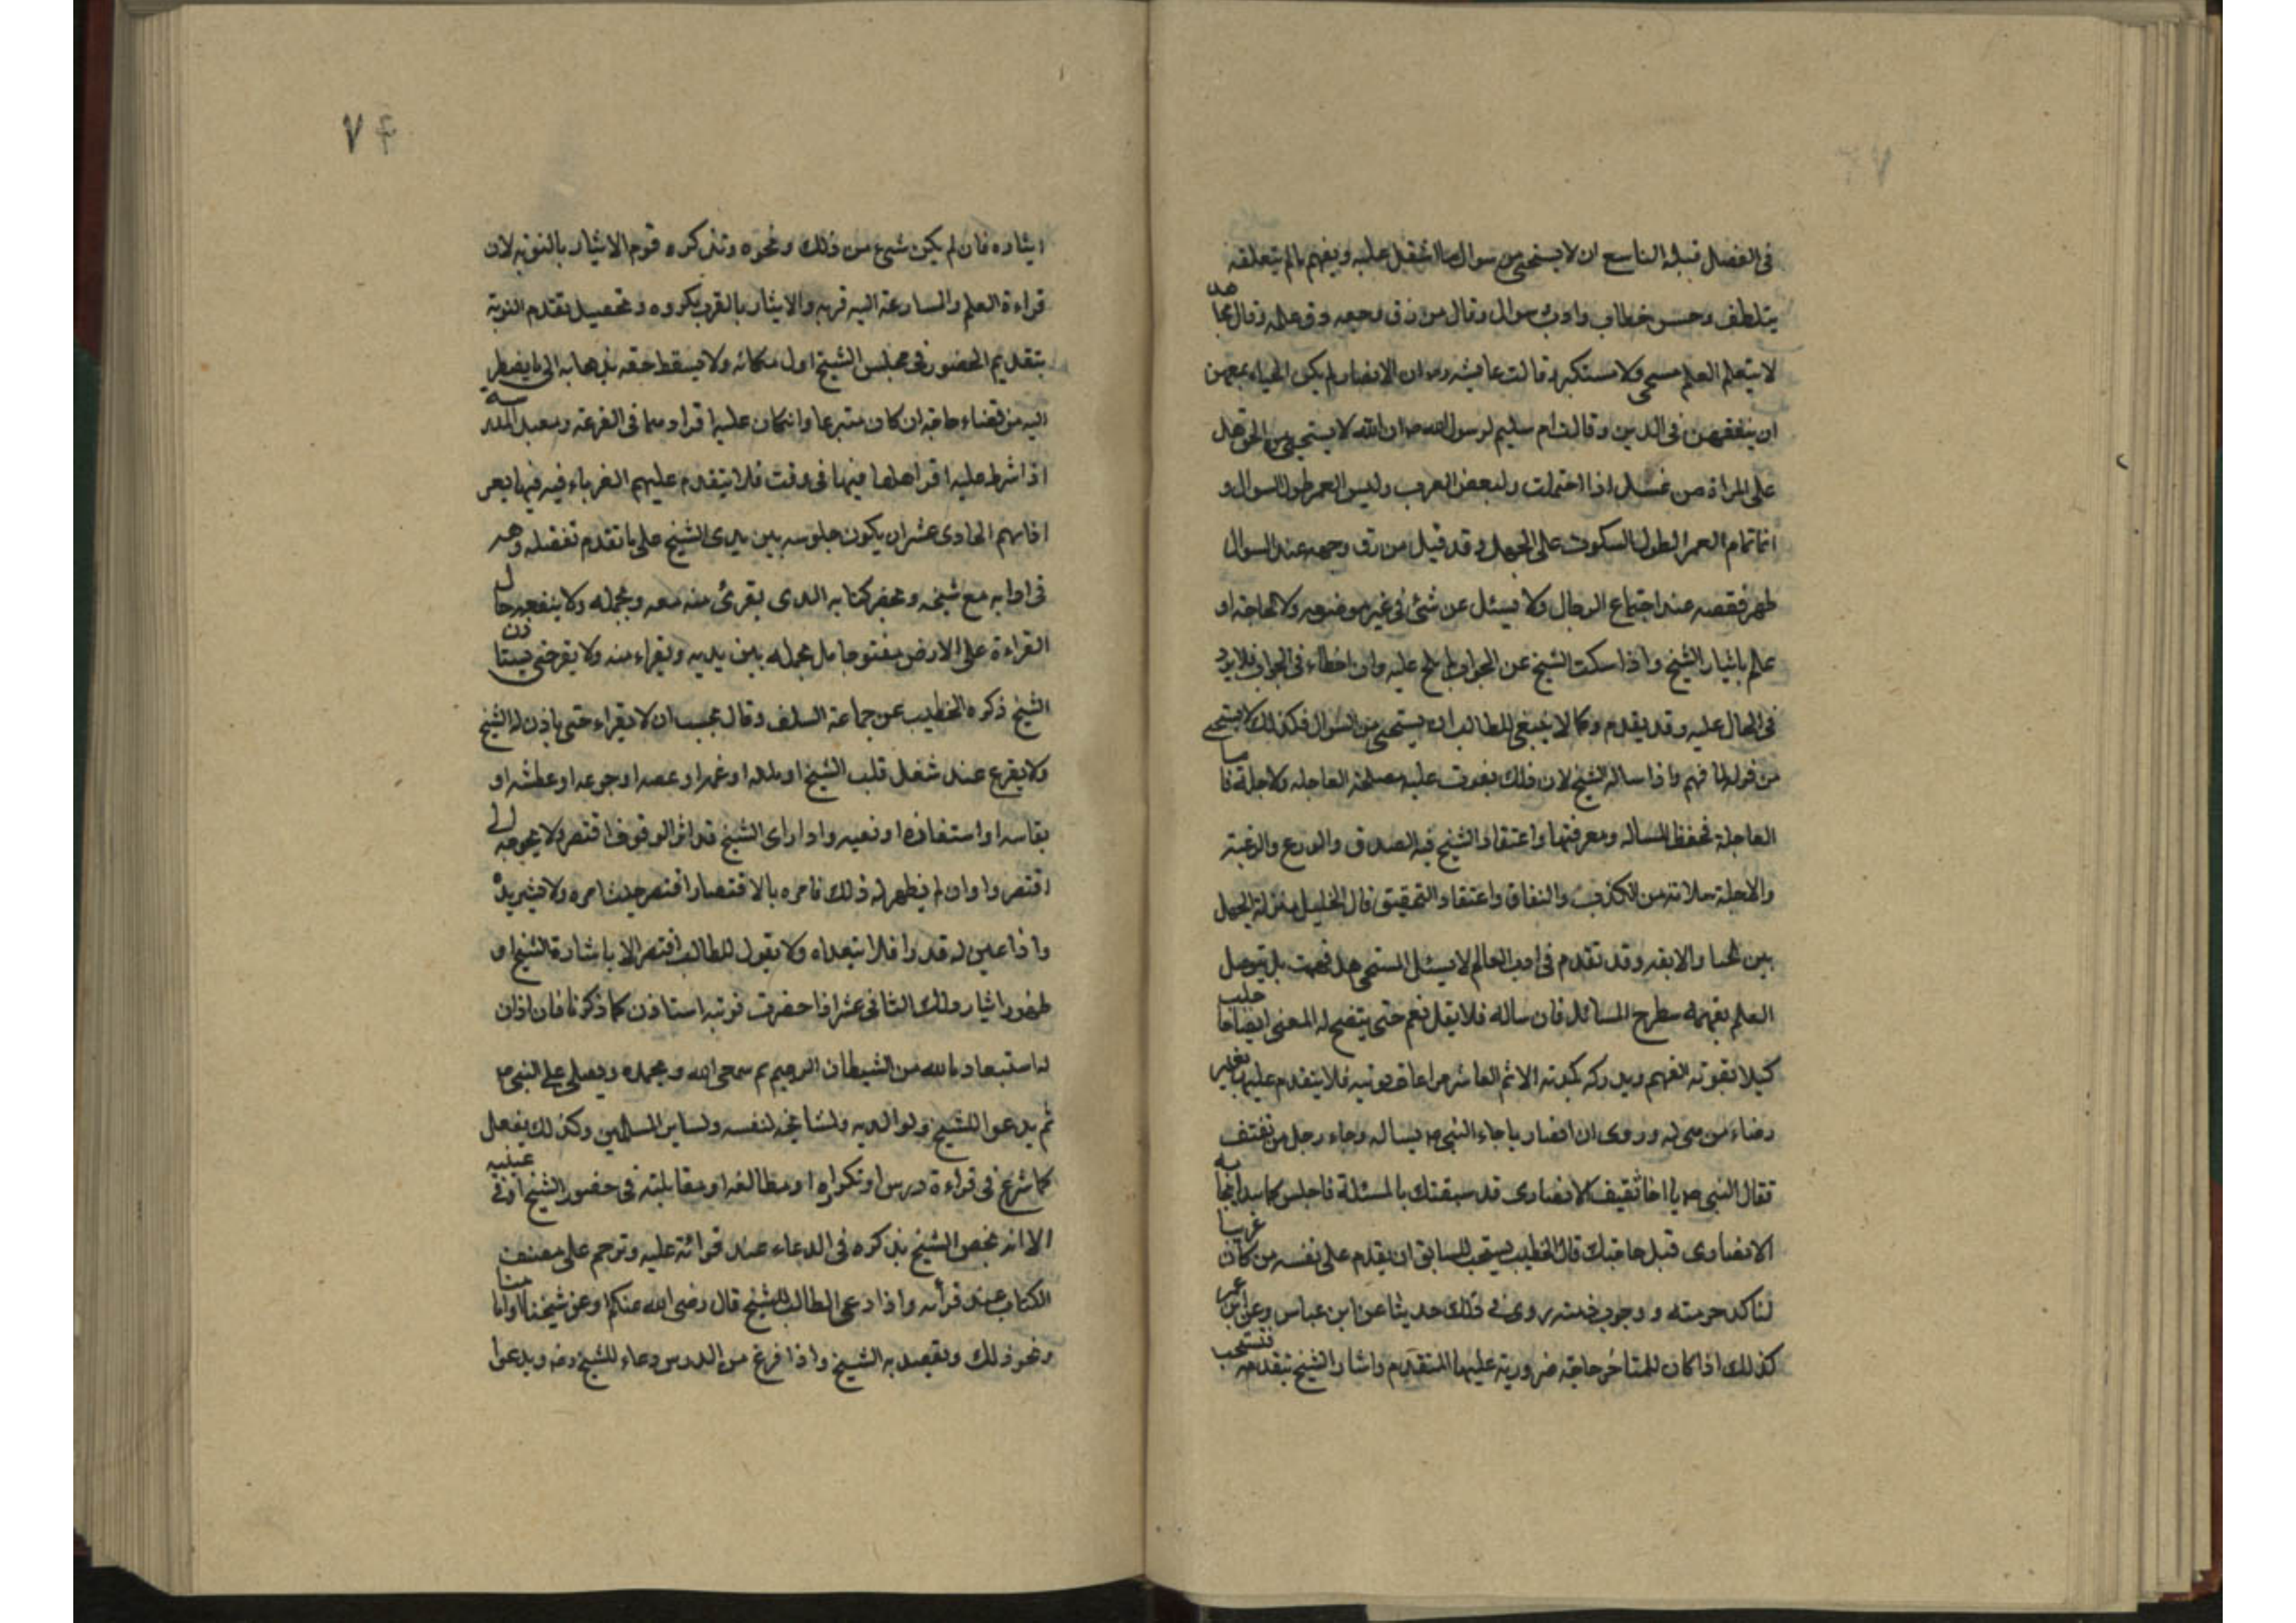 في الفصل قبله التاسع ان لا يستحيي من سوال ما اشقبل عليه ويفهم ما لم يتعلقه
يتلطف وحسن خطاب وادب سوال وقال من رق وجهه رق علمه وقال مجاهد
لا يتعلم العلم مستحي ولا مستكبر وقالت عايشه ره ان الانصار لم يكن الحياء يمنعهن
ان يتفقهن في الدين وقالت ام سليم لرسول الله ص ان الله لا يستحيي من الحق هل
على المراة من غسل اذا احتلمت ولبعض العرب وليس العمر طول السوال و
انما تمام العمر الطول السكوت على الجهل وقد قيل من رق وجهه عند السوال
ظهر نقصه عند اجتماع الرجال ولا يسئل عن شئ في غير موضعه ولا لحاجة او
علم باثيار الشيخ واذا سكت الشيخ عن الجواب لم يلح عليه وان اخطاء في الجواب فلا يرد
في الحال عليه وقد يقدم وكما لا ينبغي للطالب ان يستحيي من السوال فكذلك لا يستحي
من قوله ما فهم اذا ساله الشيخ لان ذلك يفوت عليه مصلحة العاجله ولاجلة فا
العاجلة تحفظ المساله ومعرفتها واعتقاد الشيخ فيه الصدق والورع والرغبة
والاجلة سلامته من الكذب والنفاق واعتقاد التحقيق قال الخليل منزلة الجهل
بين الحيا والانفه وقد تقدم في ادب العالم لا يسئل المستحي هل فهمت بل يتوصل
العلم بفهمه بطرح المسائل فان ساله فلا يقل نعم حتى يتضح له المعنى ايضاحا
كيلا يفوته الفهم ويدركه بكذبه الاثم العاشر مراعاة نوبته فلا يتقدم عليها بغير
رضاء من هي له وروى ان انصاريا جاء النبي ص يساله وجاء رجل من ثقيف
فقال النبي ص يا اخا ثقيف الانصاري قد سبقك بالمسئلة فاجلس كما نبدا بحاجة
الانصارى قبل حاجتك قال الخطيب يستحب للسابق ان يقدم على نفسه من كان غريبا
لتاكد حرمته ووجوب ذمته روى في ذلك حديثا عن ابن عباس وعن ابن عمر
كذلك اذا كان للمتاخر حاجة ضرورية عليها المتقدم واشار الشيخ بتقدمه فتستحب
ايثاره فان لم يكن شيئ من ذلك ونحوه وتد كره قوم الايثار بالنوبة لان
قراءة العلم والمسارعة اليه قربه والايثار بالقرب مكروه وتحصيل تقدم النوبة
بتقديم الحضور في مجلس الشيخ اول مكانه ولا يسقط حقه بذهابه الى ما يضطر
اليه من قضاء حاجة ان كان متبرعا وان كان عليه اقراوهما في القرعة ومعيد المدرسة
اذا شرط عليه اقراهلها فيها في وقت فلا يتقدم عليهم الغرباء فيه فيها بغير
اذانهم الحادى عشر ان يكون جلوسه بين يدى الشيخ على ما تقدم تفضله وهيـ
في ادابه مع شيخه وبحضر كتابه الذى يقرئ منه معه ويحمله ولا يضعه حال
القراءة على الارض مفتوحا بل يحمله بين يديه ويقراء منه ولا يقرحتى يستاذن
الشيخ ذكره الخطيب عن جماعة السلف وقال يجب ان لا يقراء حتى ياذن له الشيخ
ولا يقرع عند شغل قلب الشيخ او ملله او غمه او غضبه او جوعه او عطشه او
نعاسه او استيفازه او تعبه واذا راى الشيخ قد اثر الوقوف اقتصر ولا يحوجه الى
اقتصر واوان لم يظهر له ذلك فامره بالاقتصار اقتصر حيث امره ولا يشزيده
واذا عين له قدرا فلا يتعداه ولا يقول للطالب اقتصر الا باشارة الشيخ او
ظهور اثيار ذلك الثاني عشر اذا حضرت نوبته استاذن كما ذكرنا فان اذن
له استعاذ بالله من الشيطان الرجيم ثم سمى الله ويحمده ويصلى على النبي ص
ثم يدعوا للشيخ ولوالديه ولمشايخه لنفسه ولساير المسلمين وكذلك يفعل
كما شرع في قراءة درس او تكراره او مطالعه او مقابلته في حضور الشيخ او في غيبته
الا انه يخص الشيخ بذكره في الدعاء عند قرائة عليه وترحم على مصنف
الكتاب عند قرأنه واذا دعى الطالب للشيخ قال رضى الله عنكم او عن شيخنا وامامنا
ونحو ذلك ويقصد به الشيخ واذا فرغ من الدرس دعاء للشيخ رضه ويدعوا
٧٤